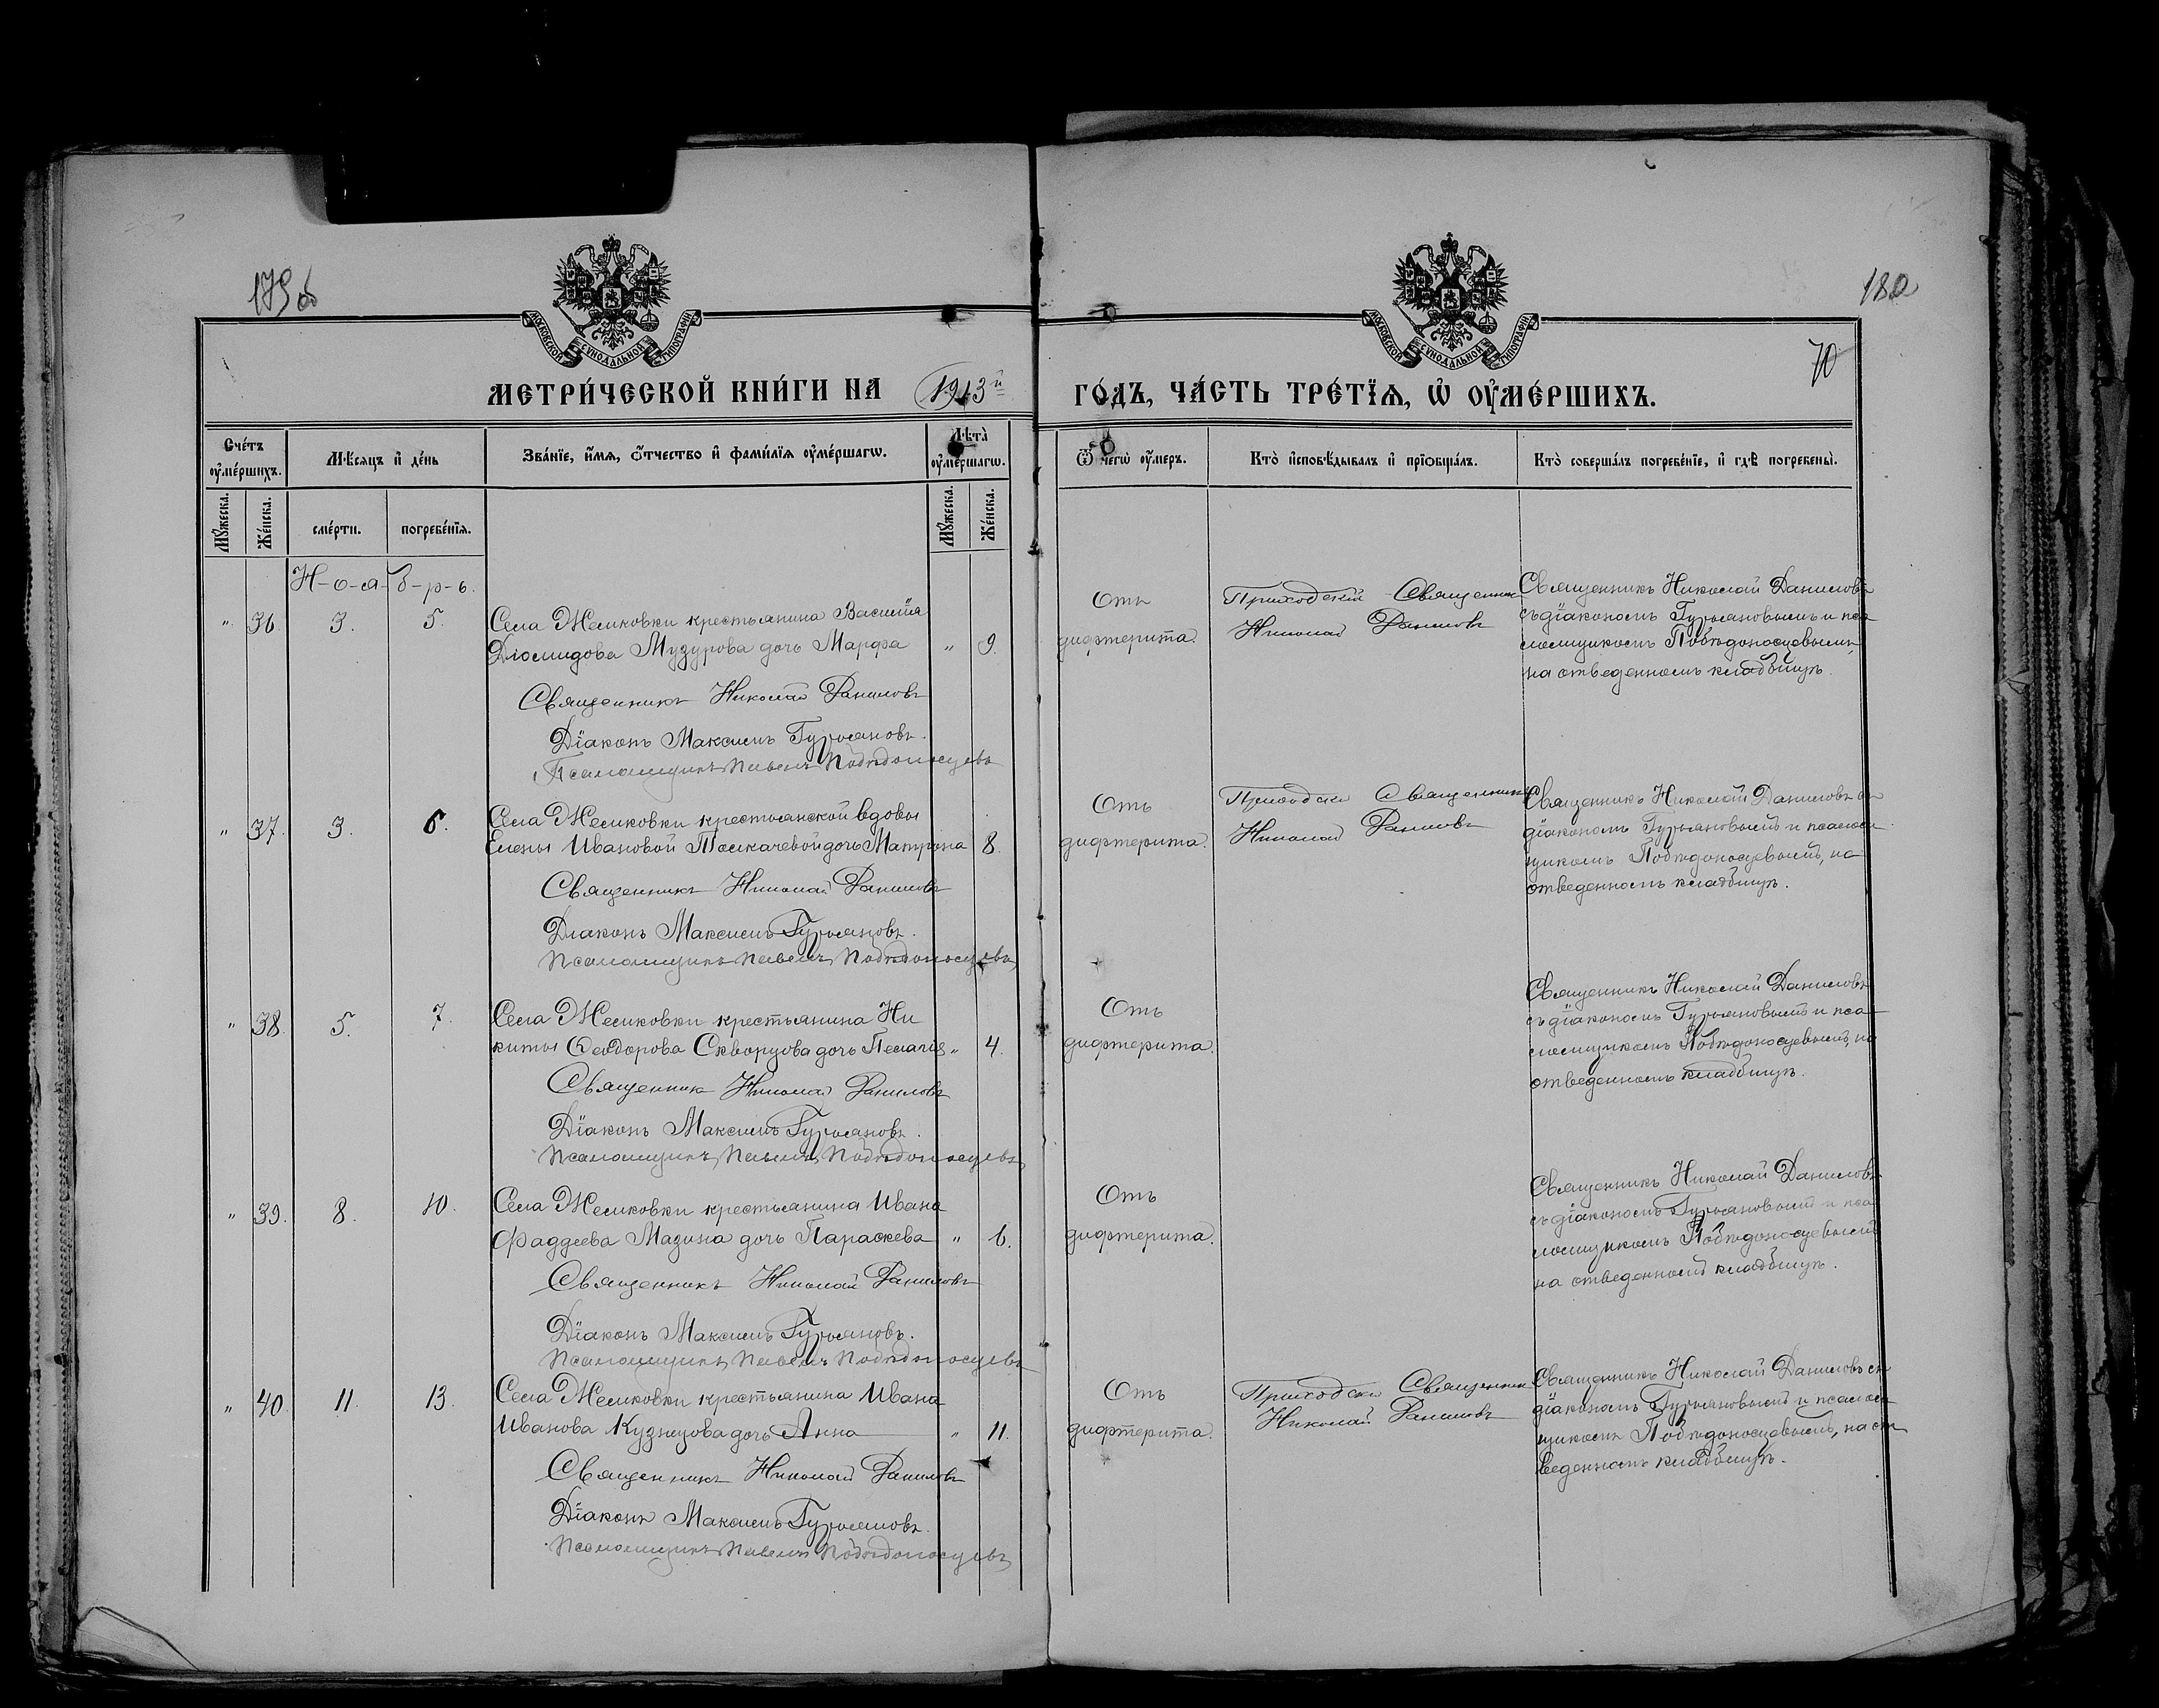 179 об
180
70
МОСКОВСКОЙ СѴНОДАЛЬНОЙ ТИПОГРАФІИ
МОСКОВСКОЙ СѴНОДАЛЬНОЙ ТИПОГРАФІИ
МЕТРИ́ЧЕСКОЙ КНИ́ГИ НА 1913й ГО́ДЪ, ЧА́СТЬ ТРЕ́ТЇѦ, Ѡ҆ ОУ҆МЕ́РШИХЪ.
Сче́тъ оу҆ме́ршихъ.
Мꙋ́жеска.
Же́нска.
Мѣ́сяцъ и҆ де́нь
сме́рти.
погребе́нїя.
Зва́нїе, и҆́мя, ѻ҆́тчество и҆ фами́лїя оу҆ме́ршагѡ.
Лѣ́та оу҆ме́ршагѡ.
Мꙋ́жеска.
Же́нска.
Ѿ чегѡ̀ оу҆́меръ.
Кто̀ и҆сповѣ́дывалъ и҆ прїѡбща́лъ.
Кто̀ соверша́лъ погребе́нїе, и҆ гдѣ̀ погребены̀.
Н-о-я-б-р-ь.
" 36. 3. 5. Села Жемковки крестьянина Василія
Діомидова Музурова дочь Марфа " 9.
Священникъ Николай Даниловъ
Діаконъ Максимъ Гурьяновъ.
Псаломщикъ Павелъ Побѣдоносцевъ
Отъ
дифтерита.
Приходскій Священник
Николай Даниловъ
Священникъ Николай Даниловъ
съ діакономъ Гурьяновымъ и пса
ломщикомъ Побѣдоносцевымъ,
на отведенномъ кладбищѣ.
" 37. 3. 6. Села Жемковки крестьянской вдовы
Елены Ивановой Толкачевой дочь Матрона 8.
Священникъ Николай Даниловъ
Діаконъ Максимъ Гурьяновъ.
Псаломщикъ Павелъ Побѣдоносцевъ
Отъ
дифтерита.
Приходск Священник
Николай Даниловъ
Священникъ Николай Даниловъ съ
діакономъ Гурьяновымъ и псалом
щикомъ Побѣдоносцевымъ, на
отведенномъ кладбищѣ.
" 38. 5. 7. Села Жемковки крестьянина Ни
киты Ѳеодорова Скворцова дочь Пелагія " 4.
Священник Николай Даниловъ
Діаконъ Максимъ Гурьяновъ.
Псаломщикъ Павелъ Побѣдоносцевъ
Отъ
дифтерита.
Священникъ Николай Даниловъ
съ діакономъ Гурьяновымъ и пса
ломщикомъ Побѣдоносцевымъ, на
отведенномъ кладбищѣ.
" 39. 8. 10. Села Жемковки крестьянина Ивана
Фаддеева Мазина дочь Параскева " 6.
Священникъ Николай Даниловъ
Діаконъ Максимъ Гурьяновъ.
Псаломщикъ Павелъ Побѣдоносцевъ
Отъ
дифтерита.
Священникъ Николай Даниловъ
съ діакономъ Гурьяновымъ и пса
ломщикомъ Побѣдоносцевымъ
на отведенномъ кладбищѣ.
" 40. 11. 13. Села Жемковки крестьянина Ивана
Иванова Кузнецова дочь Анна " 11.
Священникъ Николай Даниловъ
Діаконъ Максимъ Гурьяновъ.
Псаломщикъ Павелъ Побѣдоносцевъ
Отъ
дифтерита.
Приходск Священник
Николай Даниловъ
Священникъ Николай Даниловъ съ
діакономъ Гурьяновымъ и псалом
щикомъ Побѣдоносцевымъ, на от
веденномъ кладбищѣ.